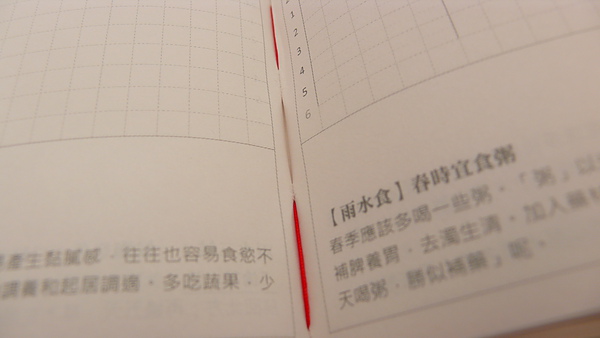 產生黏膩感，往往也容易食慾不
調養和起居調適，多吃蔬果，少
1
2
3
4
5
6
【雨水食】春時宜食粥
春季應該多喝一些粥，「粥」以
補脾養胃，去濁生清，加入藥材
天喝粥，勝似補藥」呢。